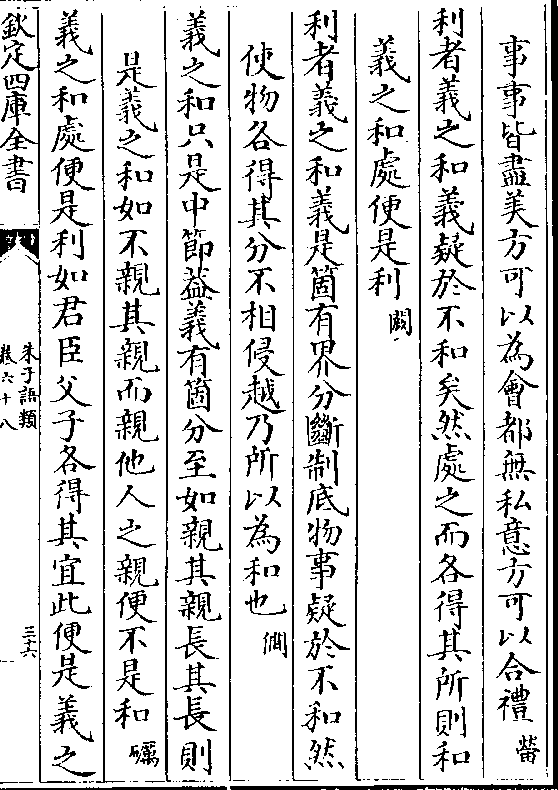 事事皆盡美方可以為會都無私意方可以合禮 㽦
利者義之和義疑於不和矣然處之而各得其所則和
義之和處便是利 閎
利者義之和義是箇有界分斷制底物事疑於不和然
使物各得其分不相侵越乃所以為和也 僩
義之和只是中節葢義有箇分至如親其親長其長則
是義之和如不親其親而親他人之親便不是和 礪
義之和處便是利如君臣父子各得其宜此便是義之
欽定四庫全書
朱子語類
卷六十八
三十六